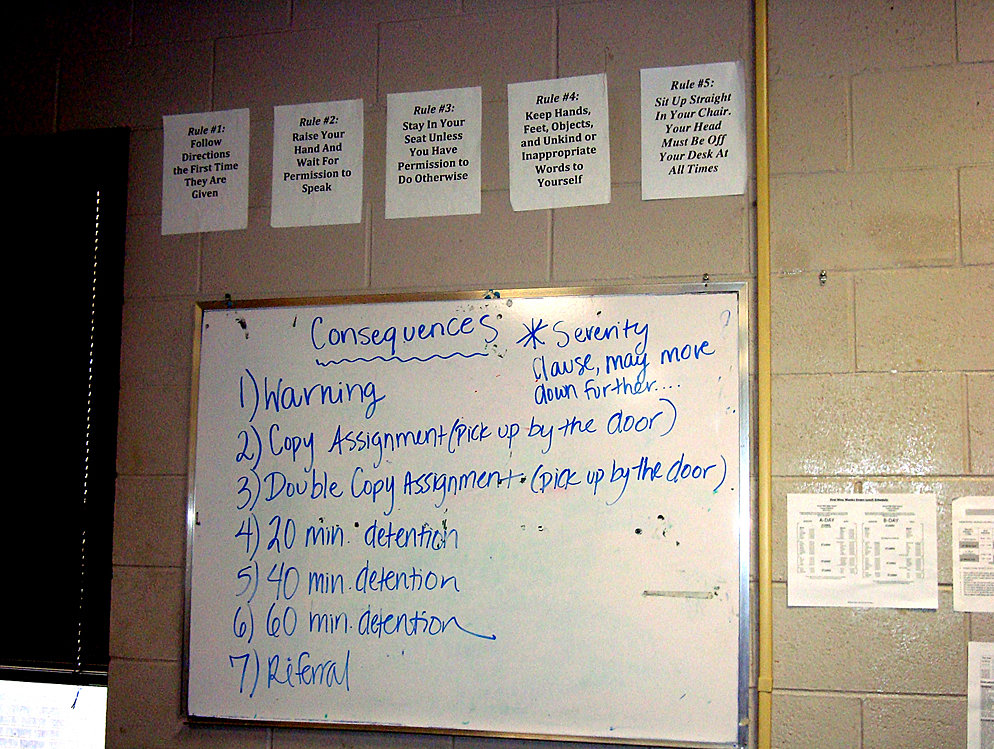 Rule #1:
Follow
Directions
the First Time
They Are
Given
Rule #2:
Raise Your
Hand And
Wait For
Permission to
Speak
Rule #3:
Stay In Your
Seat Unless
You Have
Permission to
Do Otherwise
Rule #4:
Keep Hands,
Feet, Objects,
and Unkind or
Inappropriate
Words to
Yourself
Rule #5:
Sit Up Straight
In Your Chair.
Your Head
Must Be Off
Your Desk At
All Times
Consequences
* Serenity
Clause, may more
down further....
1) Warning
2) Copy Assignment (pick up by the door)
3) Double Copy Assignment (pick up by the door)
4) 20 min. detention
5) 40 min. detention
6) 60 min. detention
7) Referral
A-DAY
B-DAY